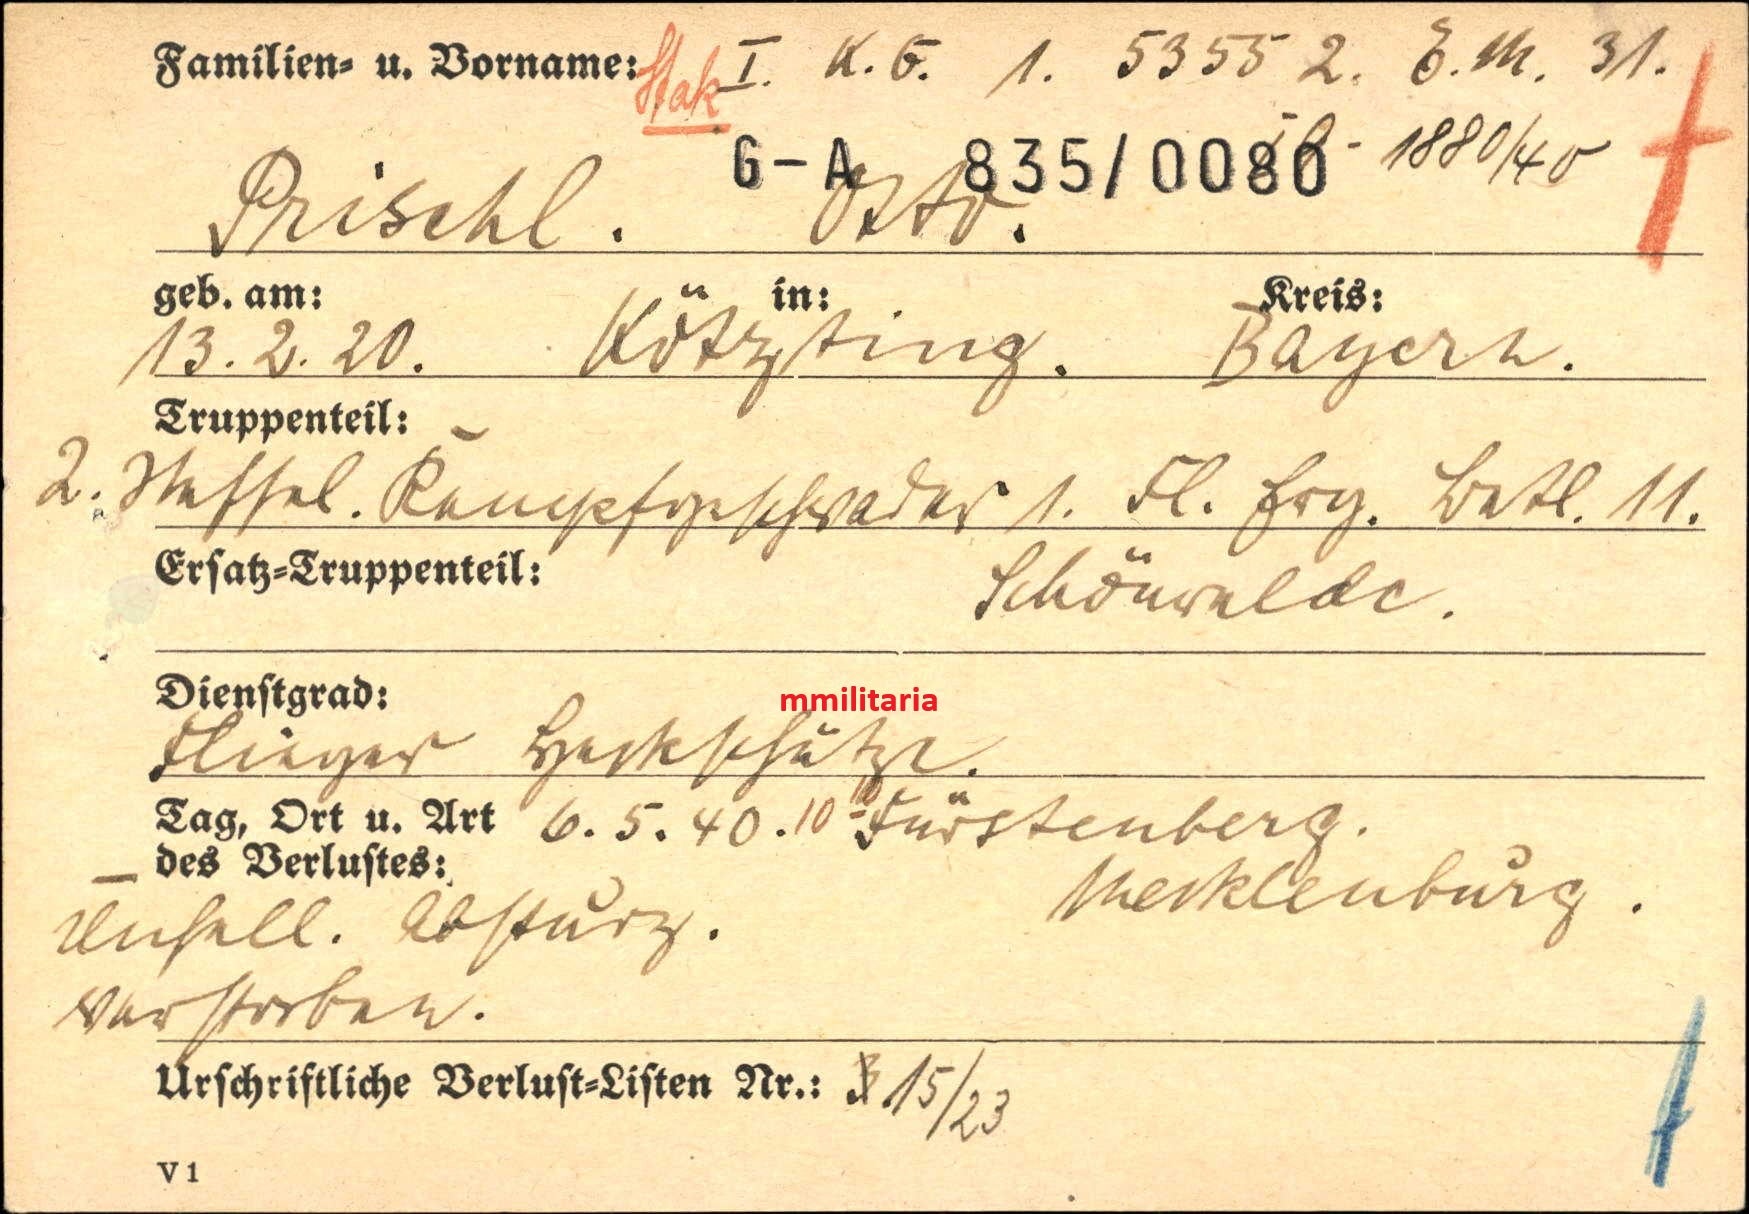 Familien- u. Vorname: Stak I. K. G. 1. 53555 2. E. M. 31.
G-A 835/0080 1880/40
Prischl. Otto.
geb. am: in: Kreis:
13. 2. 20. Kötzting. Bayern.
Truppenteil:
2. Staffel. Kampfgeschwader 1. Fl. Erg. Batl. 11.
Ersatz-Truppenteil:
Schönwalde.
Dienstgrad:
mmilitaria
Flieger Heckschütze.
Tag, Ort u. Art 6. 5. 40. 10 Fürstenberg.
des Verlustes: Mecklenburg.
Unfall. Absturz.
verstorben.
Urschriftliche Verlust-Listen Nr.: 15/23
V 1